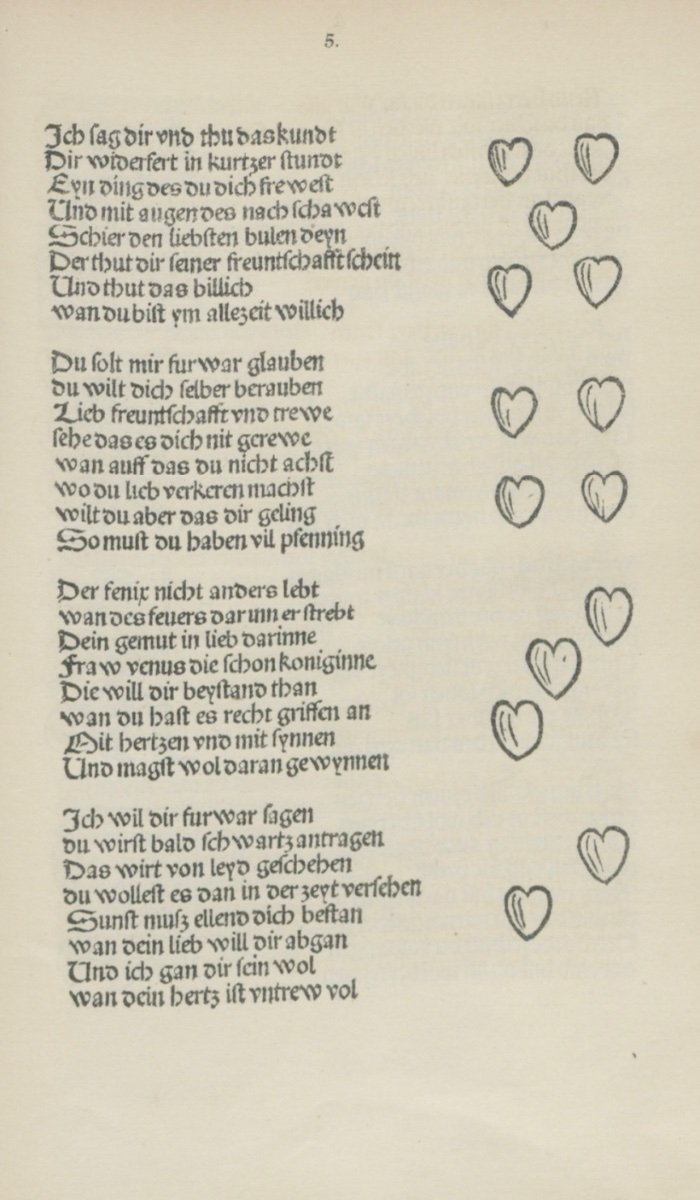 5.
Ich sag dir vnd thu das kundt
Dir widerfert in kurtzer stundt
Eyn ding des du dich frewest
Und mit augen des nach schawest
Schier den liebsten bulen deyn
Der thut dir seiner freuntschafft schein
Und thut das billich
wan du bist ym allezeit willich
Du solt mir furwar glauben
du wilt dich selber berauben
Lieb freuntschafft vnd trewe
sehe das es dich nit gerewe
wan auff das du nicht achst
wo du lieb verkeren machst
wilt du aber das dir geling
So must du haben vil pfenning
Der fenix nicht anders lebt
wan des feuers darinn er strebt
Dein gemut in lieb darinne
Fraw venus die schon koniginne
Die will dir beystand than
wan du hast es recht griffen an
Mit hertzen vnd mit synnen
Und magst wol daran gewynnen
Ich wil dir furwar sagen
du wirst bald schwartz antragen
Das wirt von leyd geschehen
du wollest es dan in der zeyt versehen
Sunst musz ellend dich bestan
wan dein lieb will dir abgan
Und ich gan dir sein wol
wan dein hertz ist vntrew vol